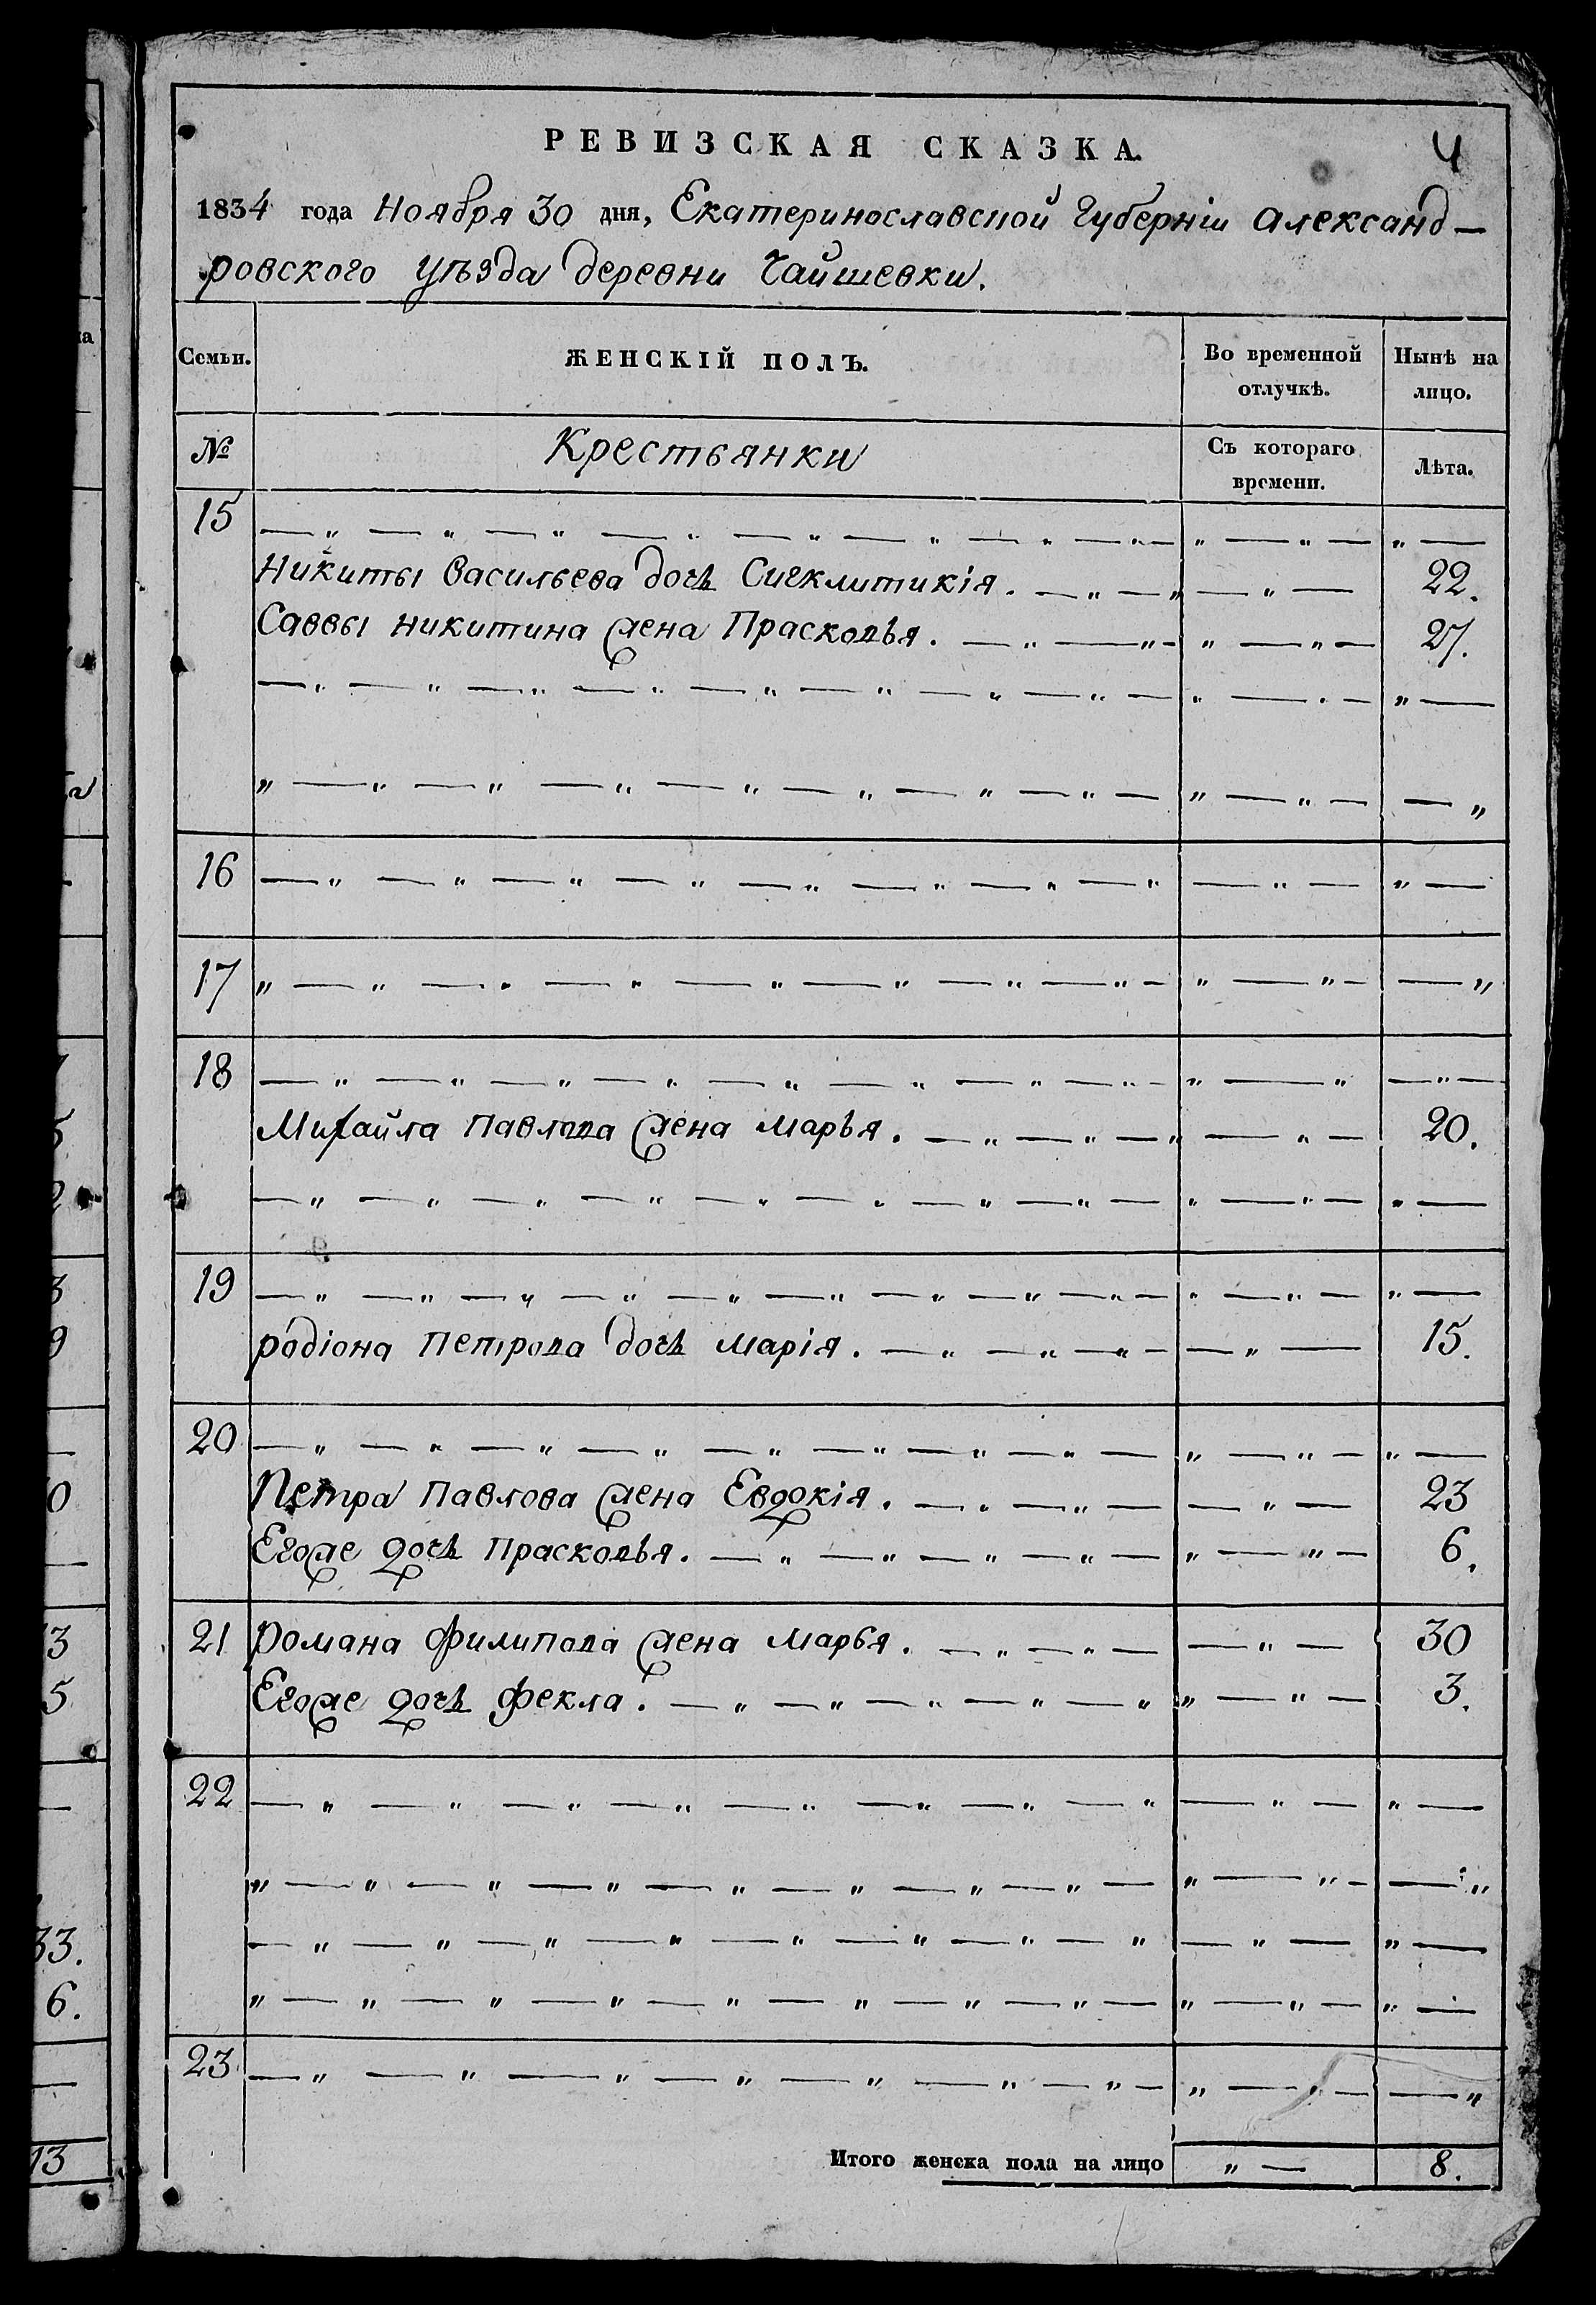 РЕВИЗСКАЯ СКАЗКА.
4
1834 года Ноября 30 дня, Екатеринославской Губерніи Александ—
ровского уѣзда деревни Чаишевки.
Семьи.
ЖЕНСКІЙ ПОЛЪ.
Во временной отлучкѣ.
Нынѣ на лицо.
№
Крестьянки
Съ котораго времени.
Лѣта.
15 — „ — „ — „ — „ — „ — „ — „ —
Никиты Васильева дочь Сигклитикія. — „ — 22.
Саввы Никитина жена Прасковья. — „ — 27.
— „ — „ — „ — „ — „ — „ — „ —
„ — „ — „ — „ — „ — „ — „ — „
16 — „ — „ — „ — „ — „ — „ — „ —
17 „ — „ — „ — „ — „ — „ — „ — „
18 — „ — „ — „ — „ — „ — „ — „ —
Михайла Павлова жена Марья. — „ — 20.
— „ — „ — „ — „ — „ — „ — „ —
19 — „ — „ — „ — „ — „ — „ — „ —
Родіона Петрова дочь Марія. — „ — 15.
20 — „ — „ — „ — „ — „ — „ — „ —
Петра Павлова жена Евдокія. — „ — 23
Егоже дочь Прасковья. — „ — 6.
21 Романа Филипова жена Марья. — „ — 30
Егоже дочь Фекла. — „ — 3.
22 — „ — „ — „ — „ — „ — „ — „ —
„ — „ — „ — „ — „ — „ — „ — „
— „ — „ — „ — „ — „ — „ — „ —
„ — „ — „ — „ — „ — „ — „ —
23 — „ — „ — „ — „ — „ — „ — „
Итого женска пола на лицо „ — 8.